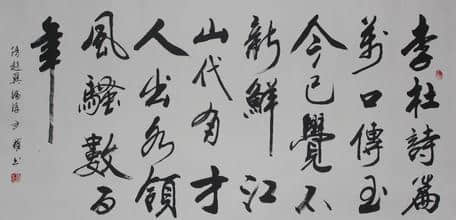 李杜詩篇
萬口傳至
今已覺不
新鮮江
山代有才
人出各領
風騷數百
年
清趙翼論詩